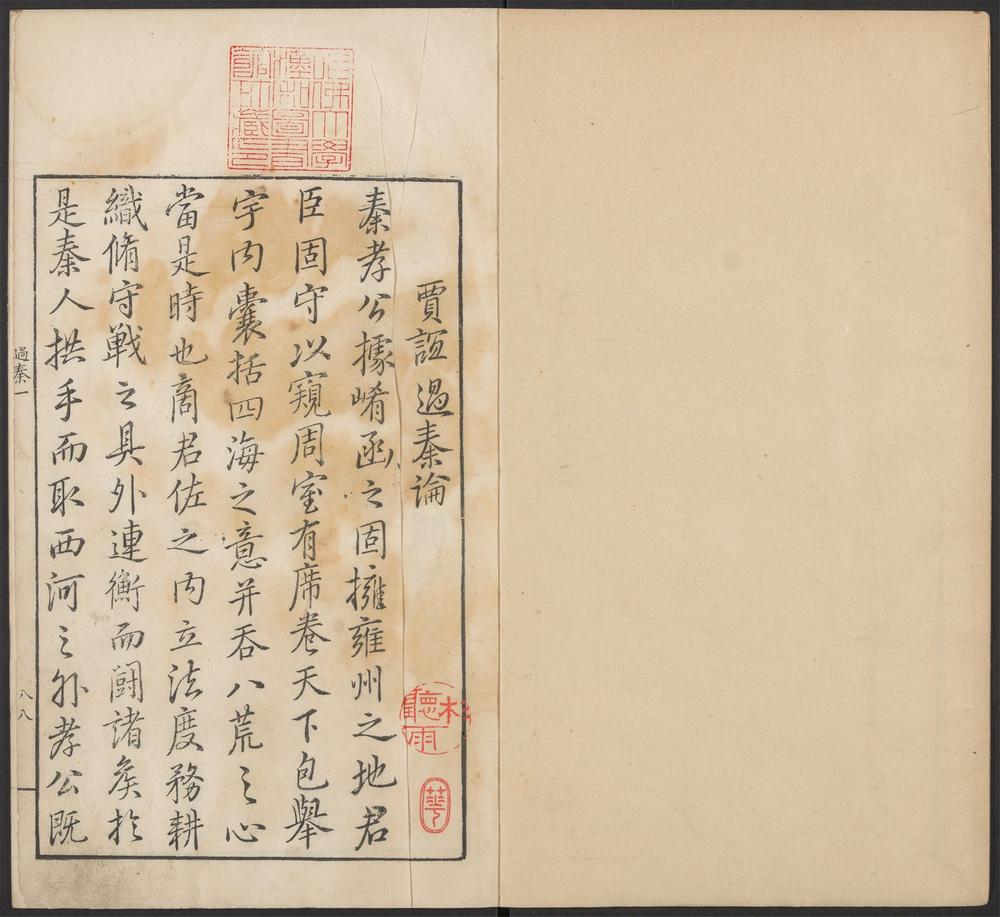 賈誼過秦論
秦孝公據崤函之固擁雍州之地君
臣固守以窺周室有席卷天下包舉
宇內囊括四海之意并吞八荒之心
當是時也商君佐之內立法度務耕
織脩守戰之具外連衡而鬪諸矦於
是秦人拱手而取西河之外孝公既
過秦一
八八
哈佛大學
漢和圖書
館珍藏印
聽雨